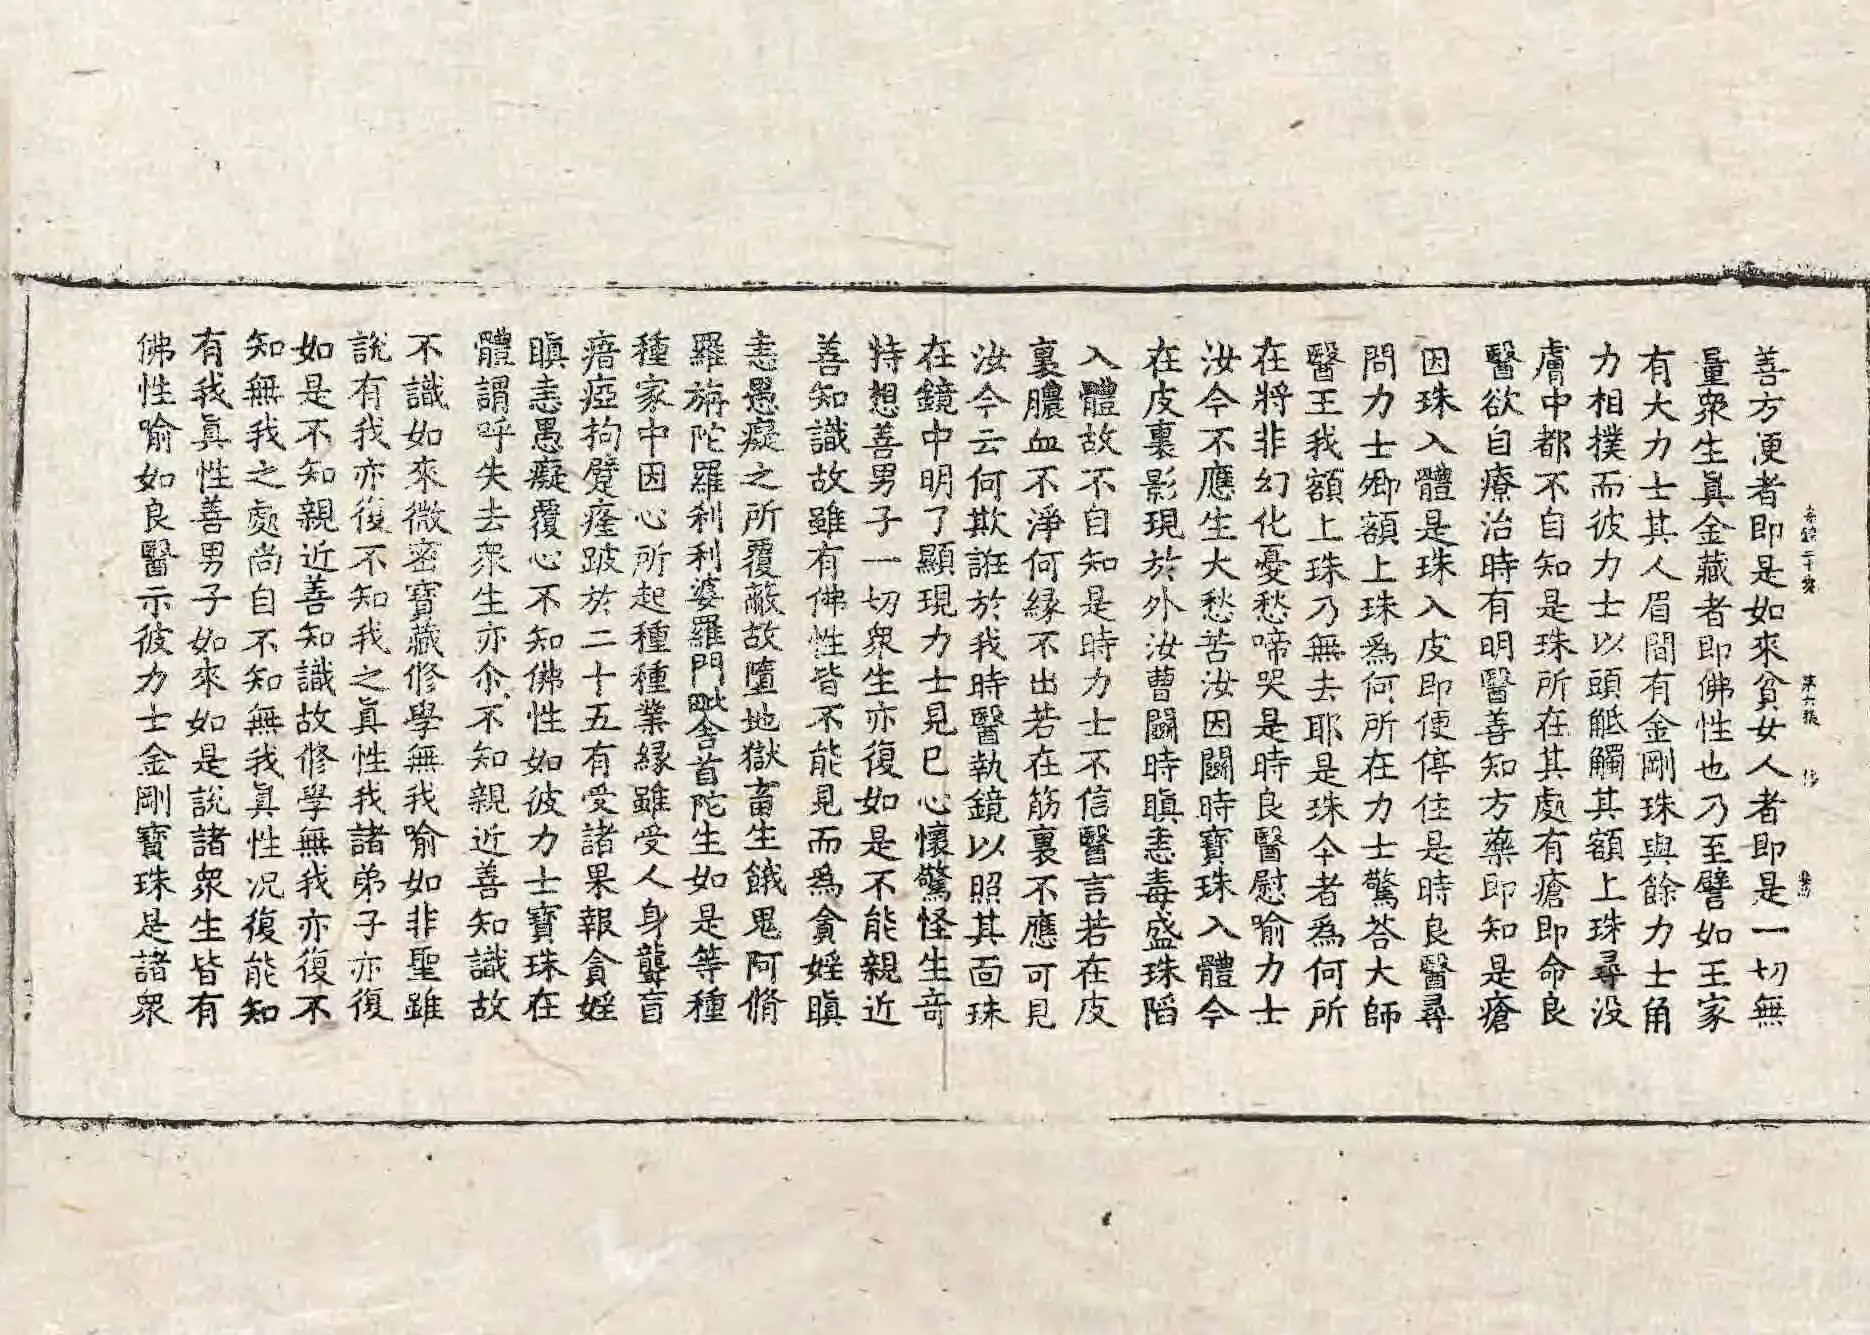 善方便者即是如來貧女人者即是一切無
量衆生眞金藏者即佛性也乃至譬如王家
有大力士其人眉間有金剛珠與餘力士角
力相撲而彼力士以頭觝觸其額上珠尋没
膚中都不自知是珠所在其處有瘡即命良
醫欲自療治時有明醫善知方藥即知是瘡
因珠入體是珠入皮即便停住是時良醫尋
問力士卿額上珠爲何所在力士驚荅大師
醫王我額上珠乃無去耶是珠今者爲何所
在將非幻化憂愁啼哭是時良醫慰喻力士
汝今不應生大愁苦汝因鬭時寶珠入體今
在皮裏影現於外汝曹鬭時瞋恚毒盛珠陷
入體故不自知是時力士不信醫言若在皮
裏膿血不淨何緣不出若在筋裏不應可見
汝今云何欺誑於我時醫執鏡以照其面珠
在鏡中明了顯現力士見已心懷驚怪生竒
特想善男子一切衆生亦復如是不能親近
善知識故雖有佛性皆不能見而爲貪婬瞋
恚愚癡之所覆蔽故墮地獄畜生餓鬼阿脩
羅旃陀羅刹利婆羅門毗舍首陀生如是等種
種家中因心所起種種業緣雖受人身聾盲
瘖瘂拘躄癃跛於二十五有受諸果報貪婬
瞋恚愚癡覆心不知佛性如彼力士寶珠在
體謂呼失去衆生亦尒不知親近善知識故
不識如來微密寶藏修學無我喻如非聖雖
說有我亦復不知我之眞性我諸弟子亦復
如是不知親近善知識故修學無我亦復不
知無我之處尚自不知無我眞性况復能知
有我眞性善男子如來如是說諸衆生皆有
佛性喻如良醫示彼力士金剛寶珠是諸衆